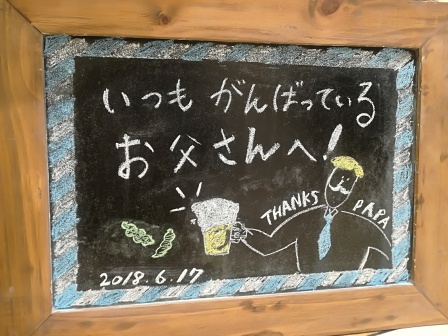 いつも がんばっている
お父さんへ!
THANKS PAPA
2018.6.17